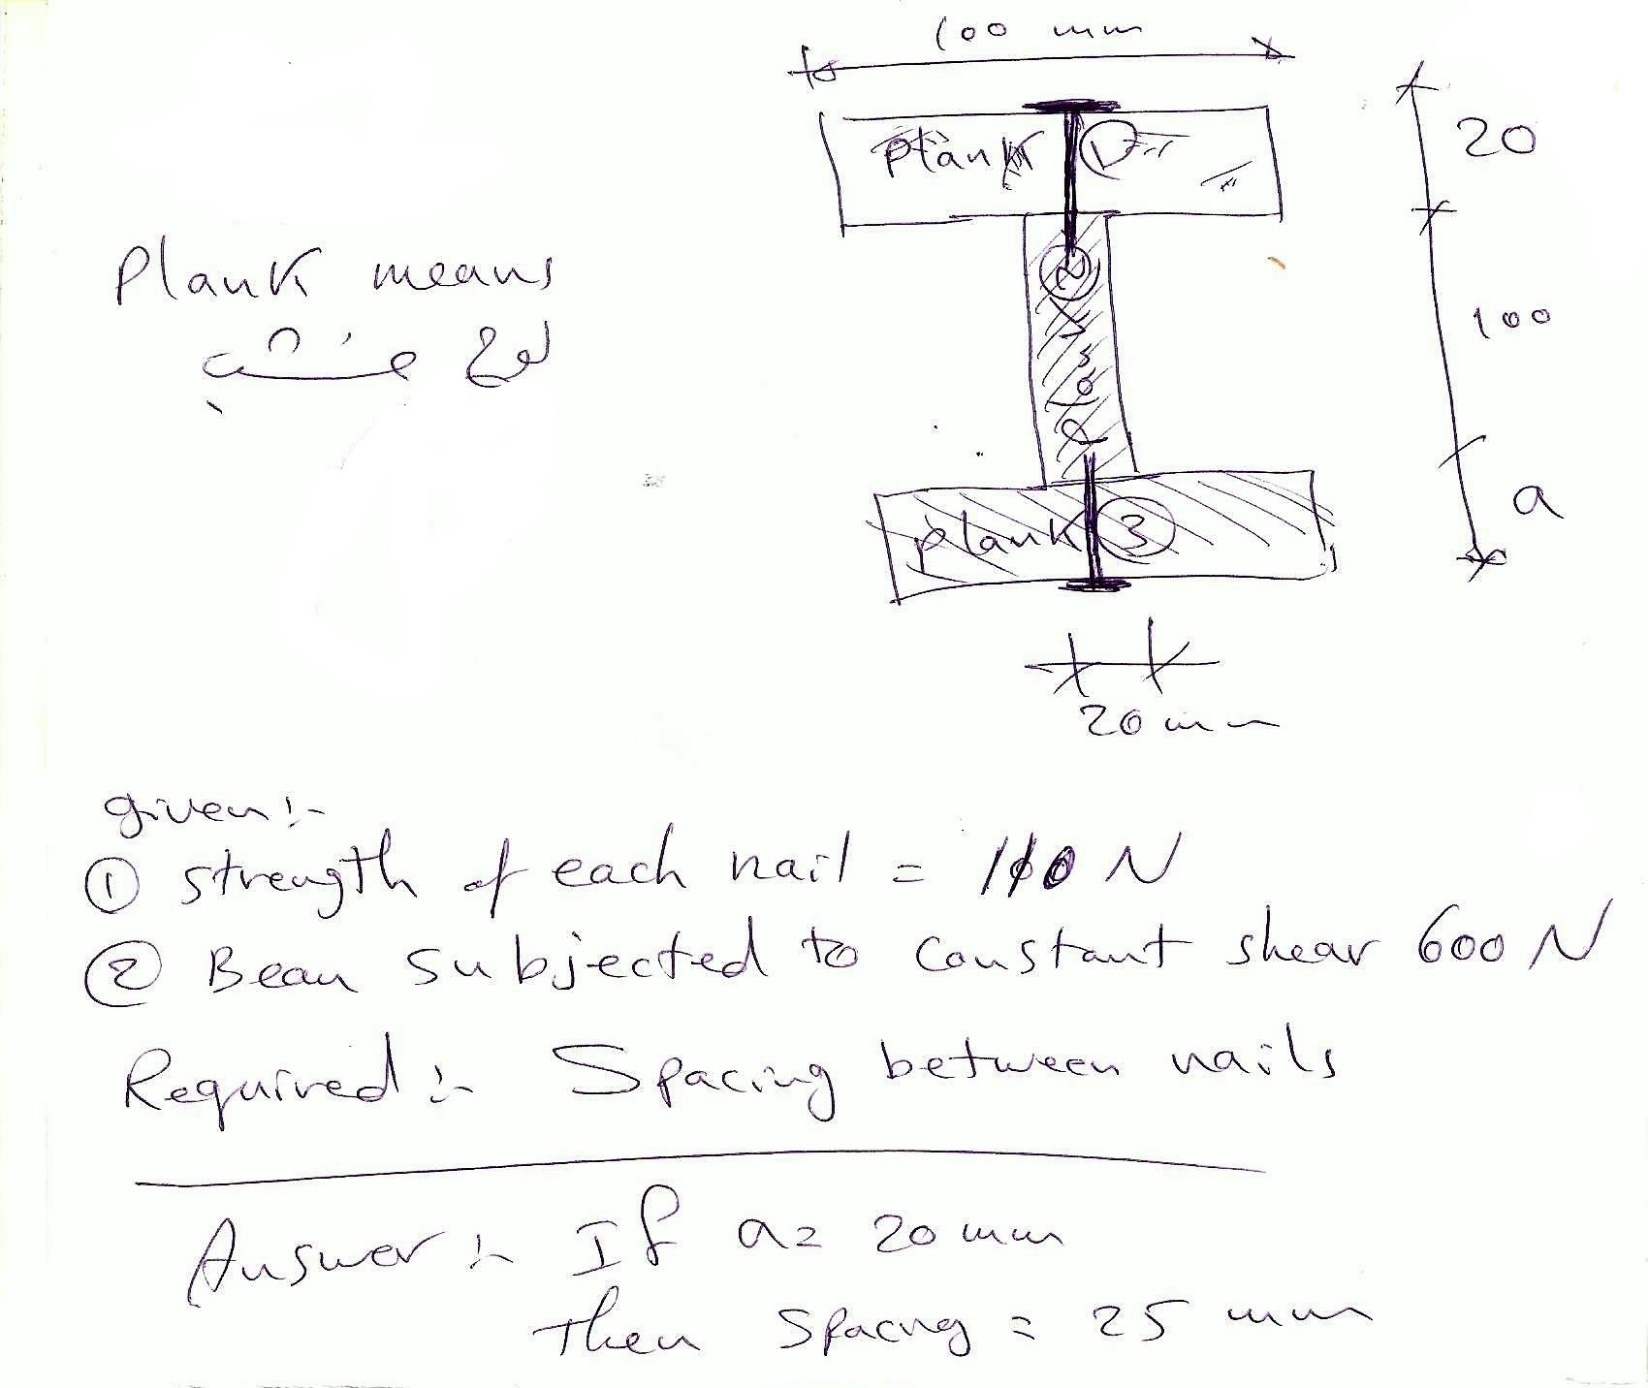 100 mm
Plank 1
20
Plank means
لوح خشب
Plank 2
100
Plank 3
a
20 mm
given:-
① strength of each nail = 110 N
② Beam subjected to constant shear 600 N
Required:- Spacing between nails
Answer:- If a = 20 mm
Then Spacing = 25 mm